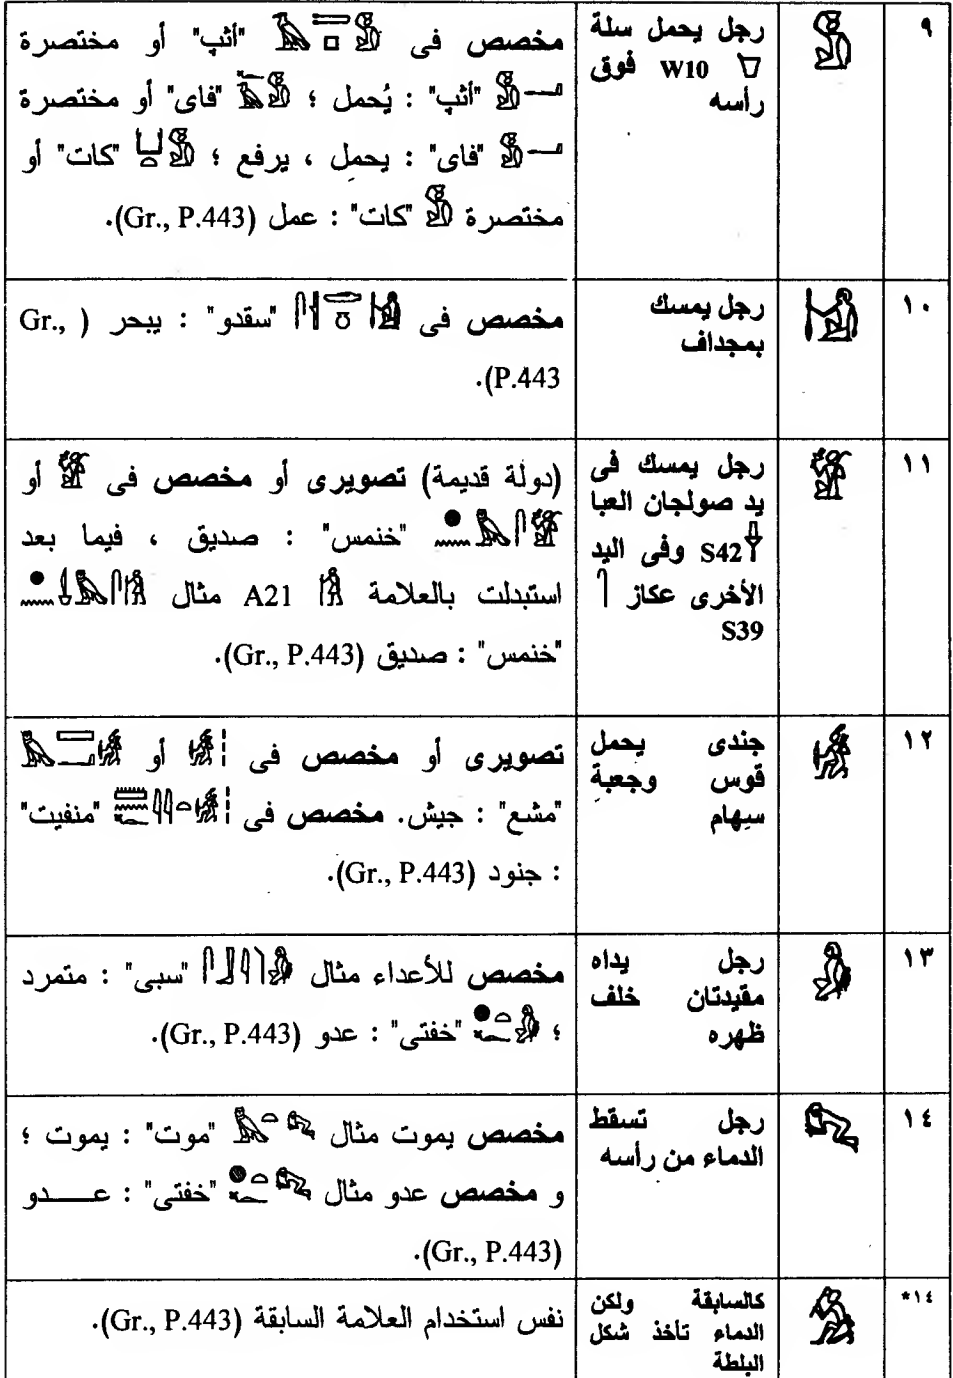 ٩
رجل يحمل سلة
W10 فوق
رأسه
مخصص فى "أثب" أو مختصرة
"أثب" : يُحمل ؛ "فاى" أو مختصرة
"فاى" : يحمل ، يرفع ؛ "كات" أو
مختصرة "كات" : عمل (Gr., P.443).
١٠
رجل يمسك
بمجداف
مخصص فى "سقدو" : يبحر (Gr.,
P.443).
١١
رجل يمسك فى
يد صولجان العبا
S42 وفى اليد
الأخرى عكاز
S39
(دولة قديمة) تصويرى أو مخصص فى أو
"خنمس" : صديق ، فيما بعد
استبدلت بالعلامة A21 مثال
"خنمس" : صديق (Gr., P.443).
١٢
جندى يحمل
قوس وجعبة
سهام
تصويرى أو مخصص فى أو
"مشع" : جيش. مخصص فى "منفيت"
: جنود (Gr., P.443).
١٣
رجل يداه
مقيدتان خلف
ظهره
مخصص للأعداء مثال "سبى" : متمرد
؛ "خفتى" : عدو (Gr., P.443).
١٤
رجل تسقط
الدماء من رأسه
مخصص يموت مثال "موت" : يموت ؛
و مخصص عدو مثال "خفتى" : عـــدو
(Gr., P.443).
١٤*
كالسابقة ولكن
الدماء تأخذ شكل
البلطة
نفس استخدام العلامة السابقة (Gr., P.443).